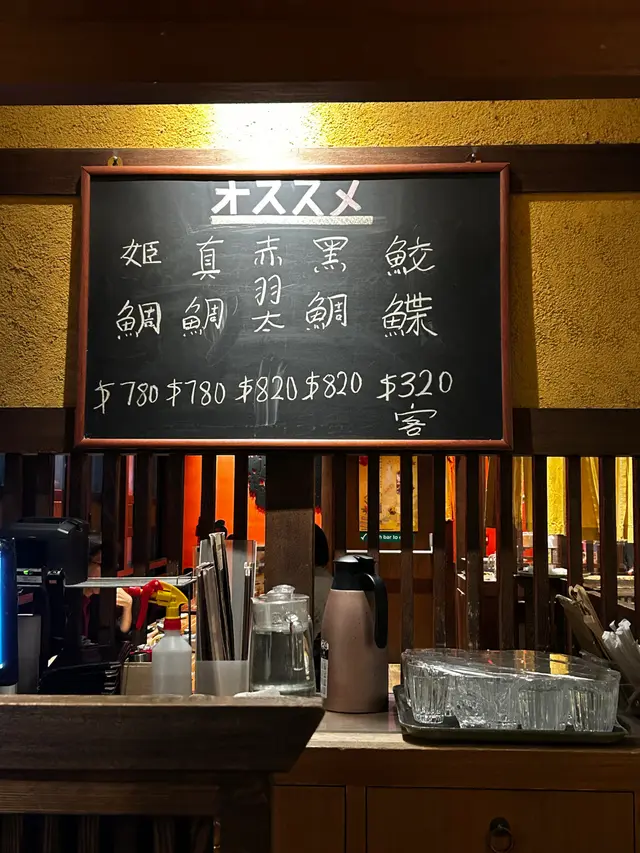 オススメ
姫鯛
$780
真鯛
$780
赤羽太
$820
黑鯛
$820
鮫鰈
$320
客